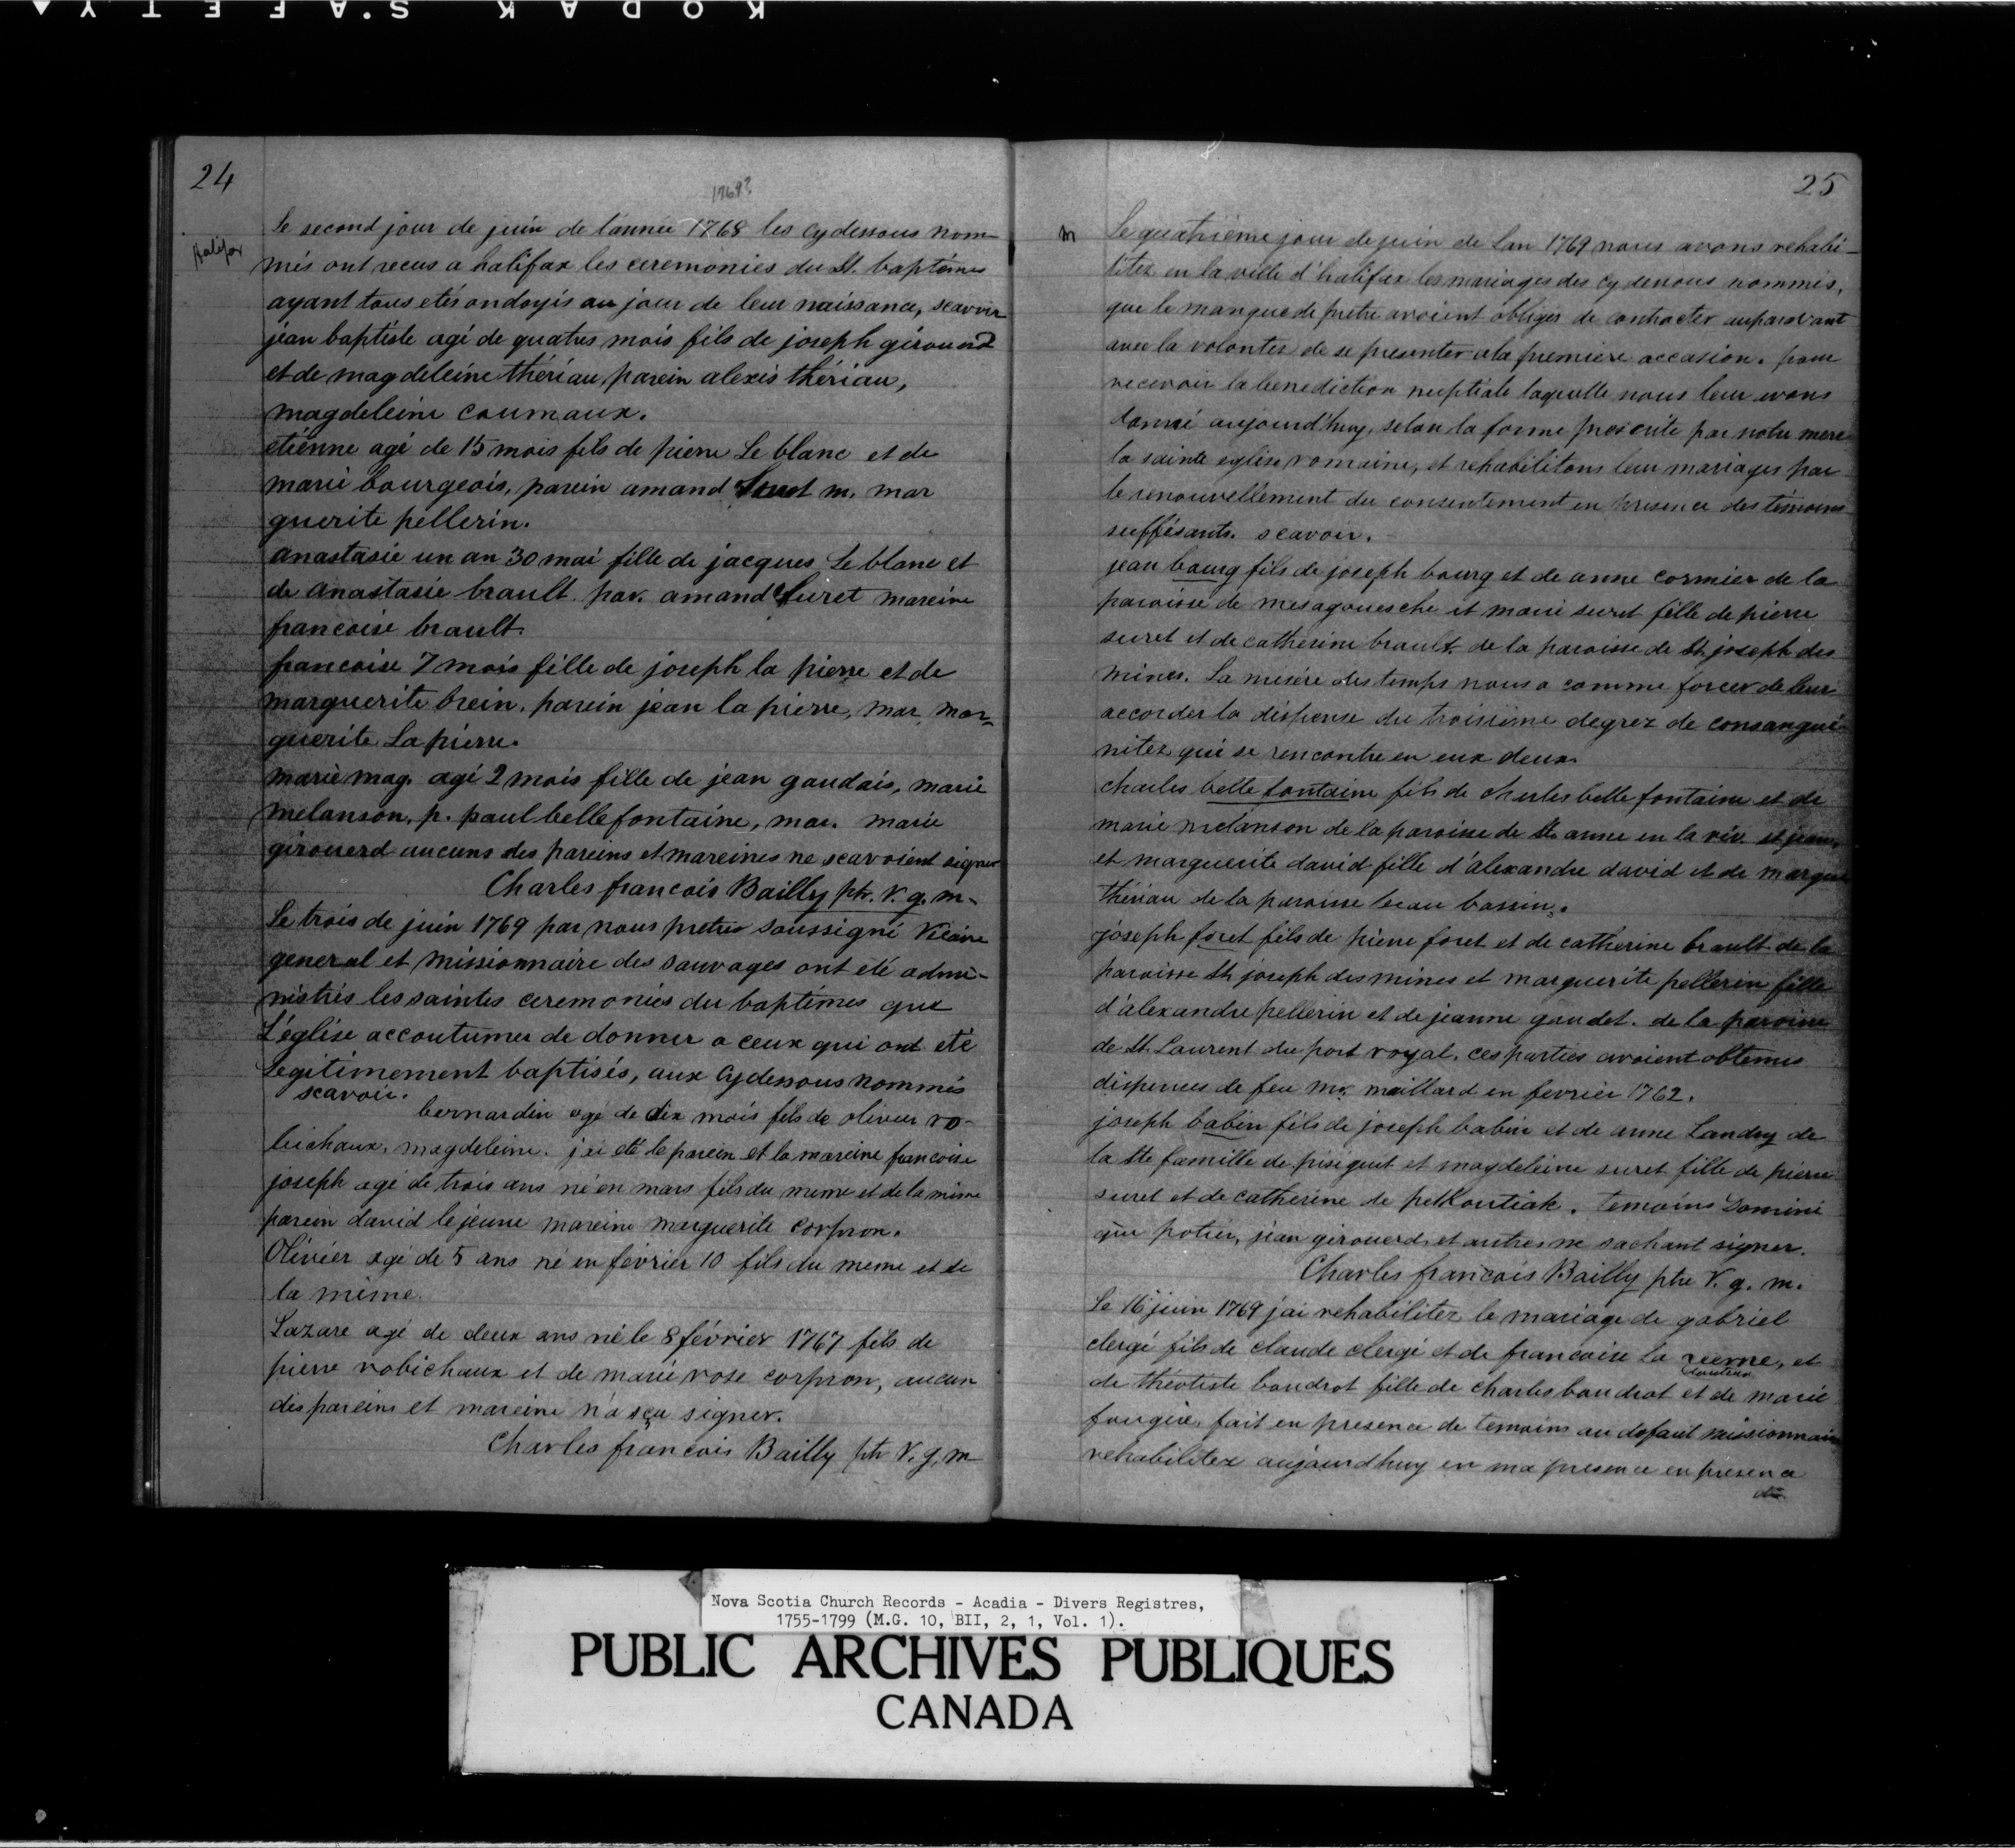 KODAK S.A.F.E.T.Y
24
1769?
Halifax
Le second jour de juin de l'année 1768 les cydessous nom-
més ont recus a halifax les ceremonies du St. baptêmes
ayant tous etés ondoyés au jour de leur naissance, scavoir
jean baptiste agé de quatres mois fils de joseph girouard
et de magdeleine thériau, parein alexis thériau,
magdeleine coumaux.
etiénne agé de 15 mois fils de pierre Le blanc et de
marie bourgeois, parein amand Suret m. mar
guerite pellerin.
anastasie un an 30 mai fille de jacques Le blanc et
de anastasie brault. par. amand Suret mareine
francoise brault.
francoise 7 mois fille de joseph la pierre et de
marguerite brein. parein jean la pierre, mar. mar-
guerite La pierre.
marie mag. agé 2 mois fille de jean gaudais, marie
melanson, p. paul belle fontaine, mar. marie
girouerd aucuns des pareins et mareines ne scavoient signer
Charles francois Bailly ptr. V. g. m.
Le trois de juin 1769 par nous pretre soussigné Vicaire
general et missionnaire des sauvages ont été admi-
nistrés les saintes ceremonies du baptêmes que
L'église accoutumer de donner a ceux qui ont eté
Legitimement baptisés, aux cydessous nommés
scavoir.
bernardin agé de dix mois fils de olivier ro-
bichaux, magdeleine. j'ai eté le parein et la mareine francoise
joseph agé de trois ans né en mars fils du meme et de la même
parein david le jeune mareine marguerite corpron.
Olivier agé de 5 ans né en février 10 fils du meme et de
la même.
Lazare agé de deux ans né le 8 février 1767 fils de
pierre robichaux et de marie rose corpron, aucun
des pareins et mareine n'a sçu signer.
Charles francois Bailly ptr V. g. m
25
m
Le quatriéme jour de juin de Lan 1769 nous avons rehabi-
litez en la ville d'halifax les mariages des cydessous nommés,
que le manque de pretre avoient obligés de contracter auparavant
avec la volontez de se presenter a la premiere occasion. pour
recevoir la benediction nuptiale laquelle nous leur avons
donné aujourd'huy, selon la forme prescrite par notre mere
la sainte eglise romaine, et rehabilitons leur mariages par
le renouvellement du consentement en presence des témoins
suffisants. scavoir.
jean bourg fils de joseph bourg et de anne cormier de la
paroisse de mesagouesche et marie suret fille de pierre
suret et de catherine brault. de la paroisse de St. joseph des
mines. La misére des temps nous a comme forcer de leur
accorder la dispense du troisiéme degrez de consangui-
nitez qui se rencontre en eux deux.
charles belle fontaine fils de cherles belle fontaine et de
marie melanson de la paroisse de Ste anne en la riv. st jean,
et marguerite david fille d'alexandre david et de margue
thériau de la paroisse beau bassin.
joseph foret fils de pierre foret et de cathérine brault de la
paroisse St. joseph des mines et marguerite pellerin fille
d'alexandre pellerin et de jeanne gaudet. de la paroisse
de St. Laurent du port royal. ces parties avoient obtenus
dispences de feu mr. maillard en fevrier 1762.
joseph babin fils de joseph babin et de anne Landry de
la Ste famille de pisiguit et magdeleine suret fille de pierre
suret et de catherine de petKoutiak. temoins Domini
que potier, jean girouerd, et autres ne sachant signer.
Charles francois Bailly ptre V. g. m.
Le 16 juin 1769 j'ai rehabilitez le mariage de gabriel
clergé fils de claude clergé et de francoise La
de théotiste boudrot fille de charles boudrot et de marie
fougére, fait en presence de temoins au defaut missionnaire
rehabilitez aujourdhuy en ma presence en presence
de
Nova Scotia Church Records - Acadia - Divers Registres,
1755-1799 (M.G. 10, BII, 2, 1, Vol. 1).
PUBLIC ARCHIVES PUBLIQUES
CANADA